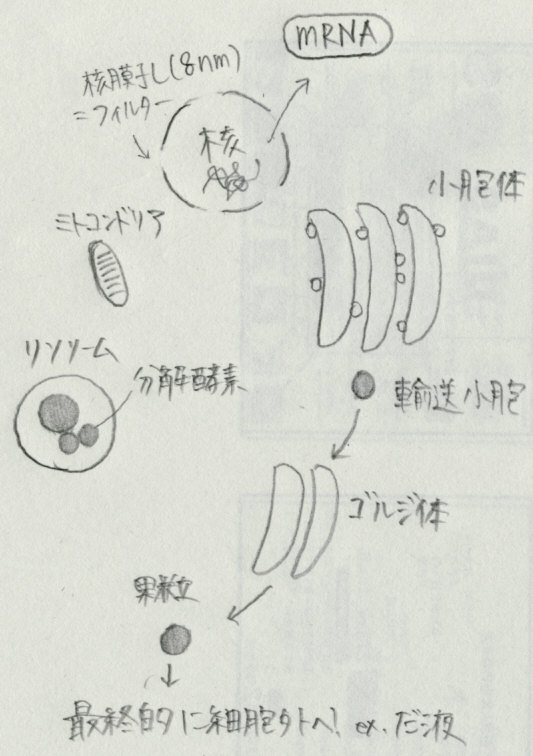 mRNA
核膜孔(8nm)
=フィルター
核
小胞体
ミトコンドリア
リソソーム
分解酵素
輸送小胞
ゴルジ体
顆粒
最終的に細胞外へ! ex. だ液